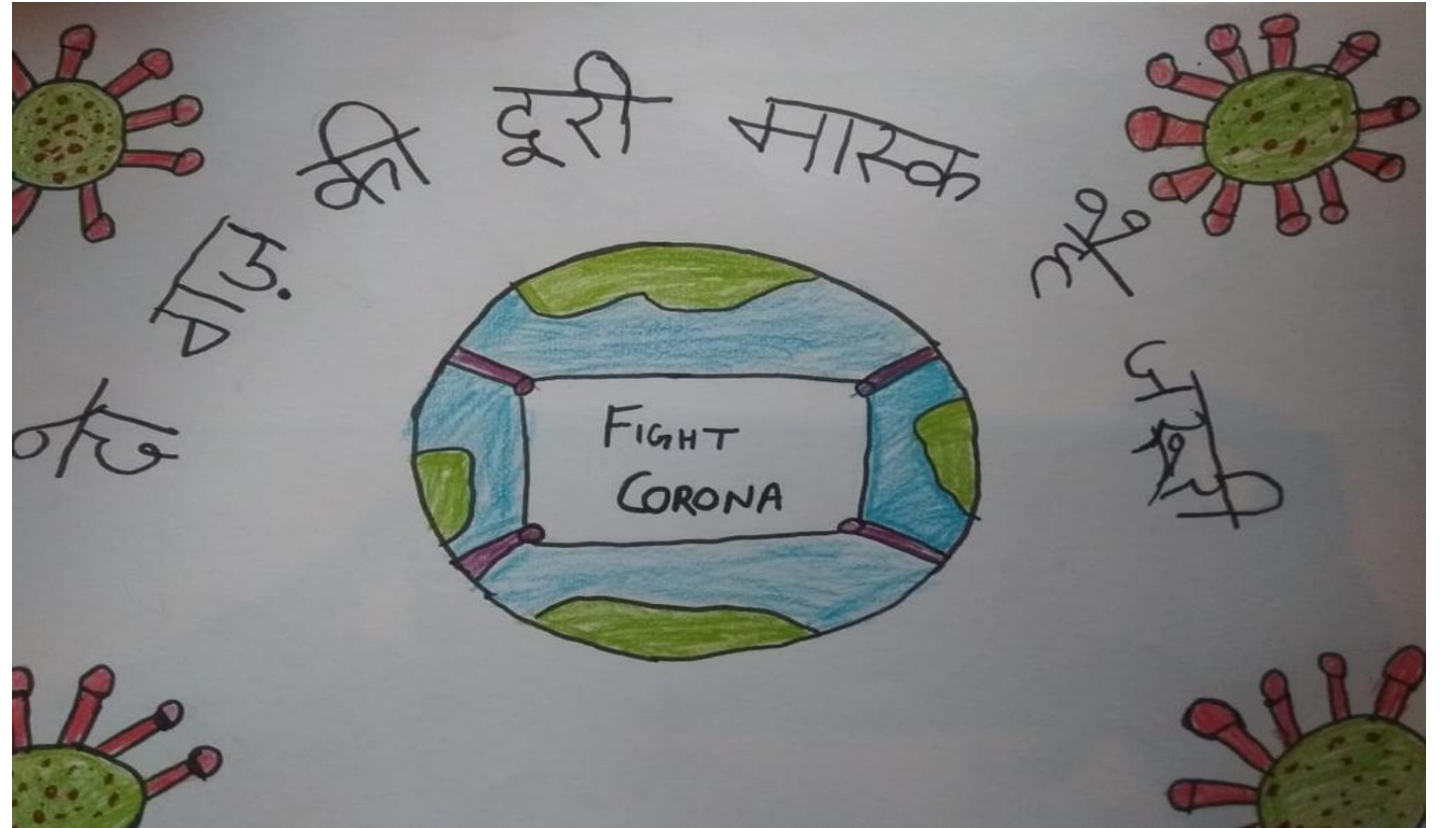 दो गज़ की दूरी मास्क है जरूरी
FIGHT
CORONA